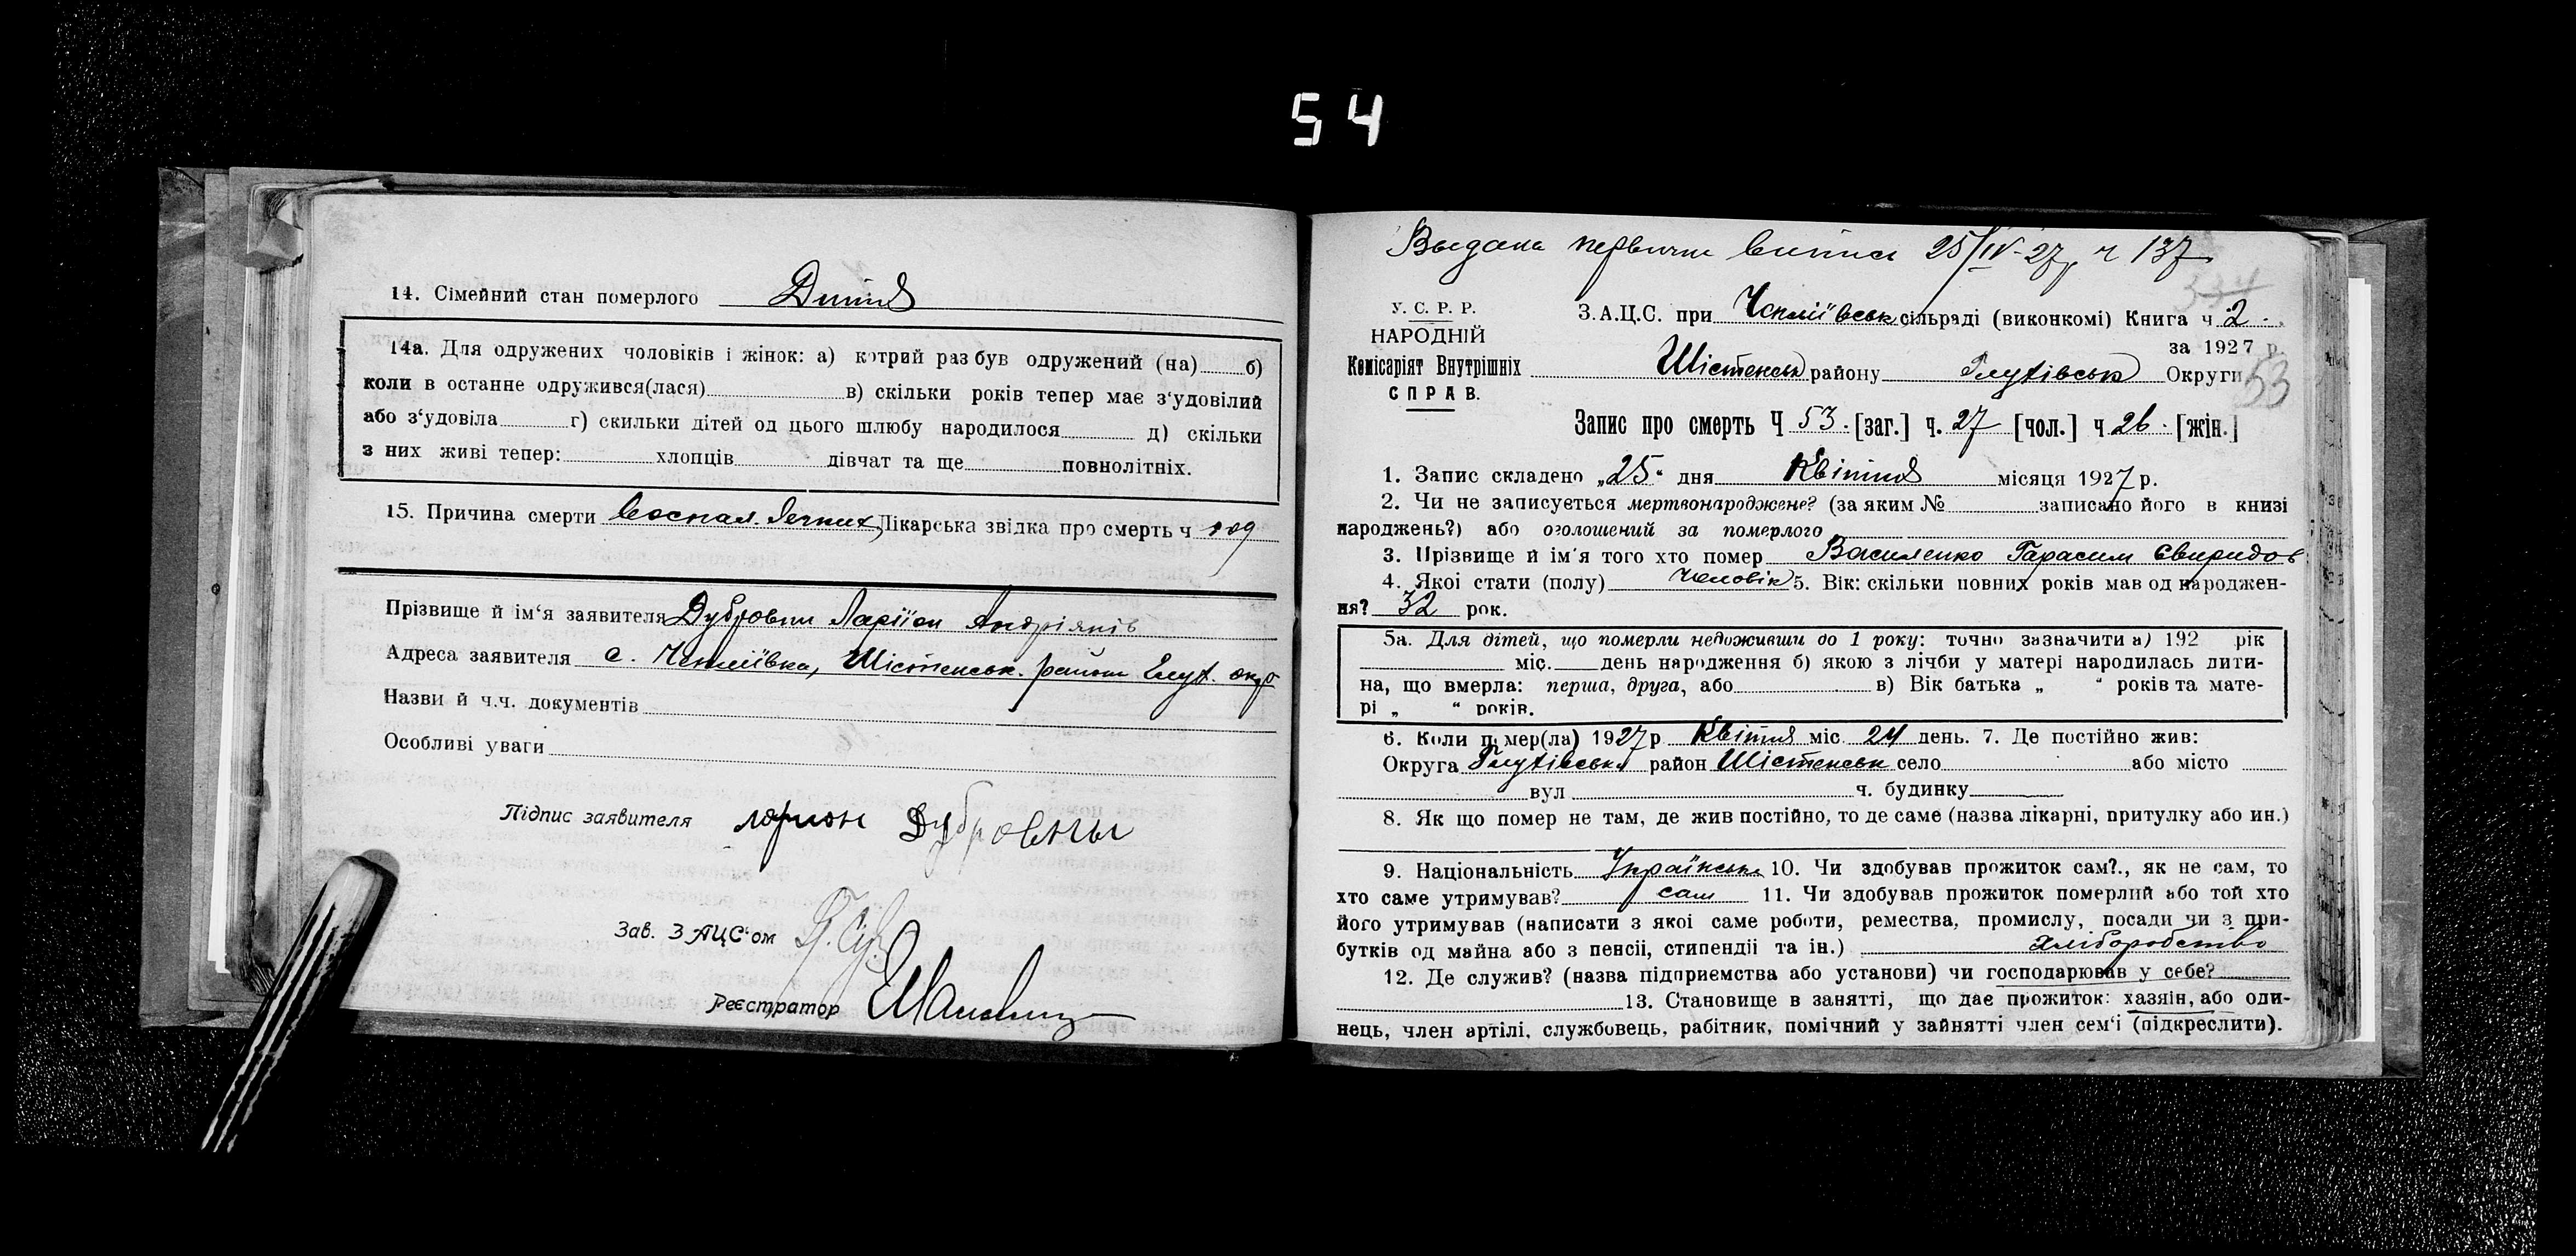 54
14. Сімейний стан померлого Дитина
14а. Для одружених чоловіків і жінок: а) котрий раз був одружений (на) б)
коли в останне одружився(лася) в) скільки років тепер має з‘удовілий
або з‘удовіла г) скильки дітей од цього шлюбу народилося д) скільки
з них живі тепер: хлопців дівчат та ще повнолітніх.
15. Причина смерти Лікарська звідка про смерть ч 109
Прізвище й ім‘я заявителя Дубровни Ларіон Андріянів
Адреса заявителя с. Чепліївка, Шістенськ. район Глух. окр
Назви й ч.ч. документів
Особливі уваги
Підпис заявителя Ларион Дубровны
Зав. ЗАЦС‘ом
Реєстратор
Выдана первична випись 25/IV-27р ч 137
334
У. С. Р. Р.
З.А.Ц.С. при Чепліївськ сільраді (виконкомі) Книга ч 2.
НАРОДНІЙ
за 1927 р.
Комісаріят Внутрішніх Шістенськ району Глухівськ Округи
53
СПРАВ.
Запис про смерть Ч 53. [заг.] ч. 27 [чол.] ч. 26. [жін.]
1. Запис складено „25“ дня Квітня місяця 1927 р.
2. Чи не записується мертвонароджене? (за яким № записано його в книзі
народжень?) або оголошений за померлого
3. Прізвище й ім‘я того хто помер Василенко Гарасим Свиридов
4. Якоі стати (полу) Чоловік 5. Вік: скільки повних років мав од народжен-
ня? 32 рок.
5а. Для дітей, що померли недоживши до 1 року: точно зазначити а) 192 рік
міс. день народження б) якою з лічби у матері народилась дити-
на, що вмерла: перша, друга, або в) Вік батька „ “ років та мате-
рі „ “ років.
6. Коли помер(ла) 1927 р Квітня міс. 24 день. 7. Де постійно жив:
Округа Глухівська район Шістенськ село або місто
вул ч. будинку
8. Як що помер не там, де жив постійно, то де саме (назва лікарні, притулку або ин.)
9. Національність Українськ 10. Чи здобував прожиток сам?., як не сам, то
хто саме утримував? сам 11. Чи здобував прожиток померлий або той хто
його утримував (написати з якоі саме роботи, ремества, промислу, посади чи з при-
бутків од майна або з пенсіі, стипендіі та ін.) хліборобство
12. Де служив? (назва підприемства або установи) чи господарював у себе?
13. Становище в занятті, що дає прожиток: хазяін, або оди-
нець, член артілі, службовець, рабітник, помічний у зайнятті член сем‘і (підкреслити).